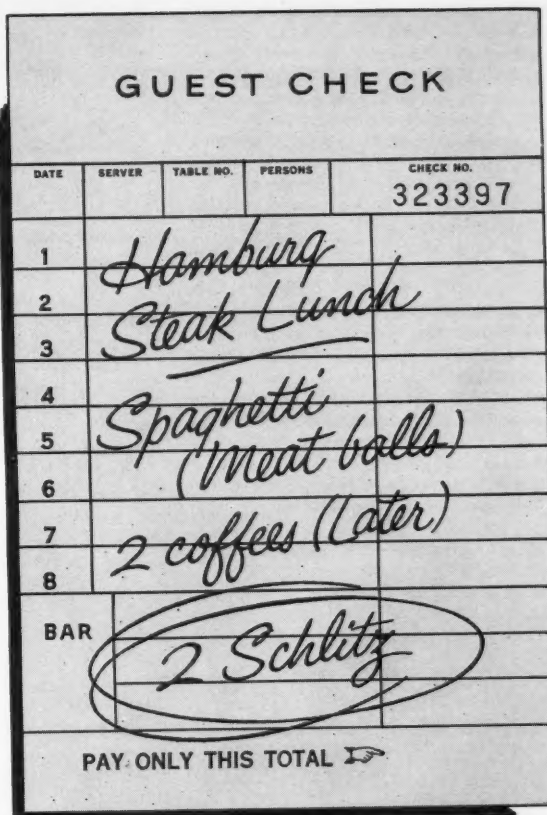 GUEST CHECK
DATE SERVER TABLE NO. PERSONS CHECK NO.
323397
1 Hamburg
2 Steak Lunch
3
4 Spaghetti
5 (Meat balls)
6
7 2 coffees (Later)
8
BAR 2 Schlitz
PAY ONLY THIS TOTAL ☞